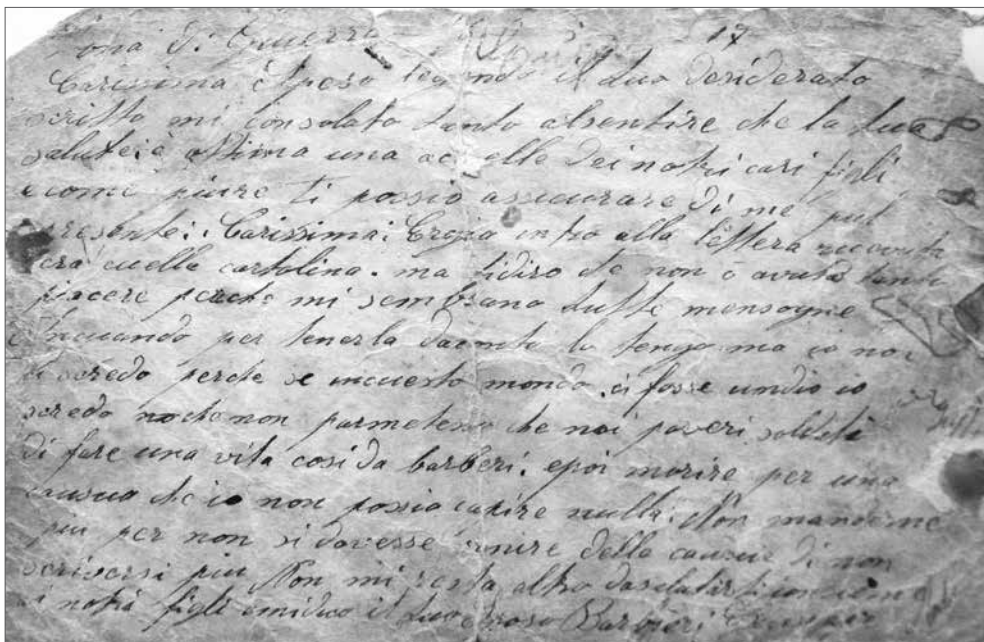 ona di Guerra 17
Carissima Speso legendo il tuo desiderato
scritto mi consolato tanto alsentire che la tua
salute: è ottima una ac elle dei notri cari figli
e come piure ti possio assicurare di me pul
presente: Carissima: Ergia intro alla lettera
era cuella cartolina. ma tidiro che non ò avuto tanto
piacere perche mi sembrano tutte mensogne
Incuando per tenerla daconto la tengo ma io non
ci credo perche se incuesto mondo. ci fosse undio io
credo nochenon parmeteno che noi poveri soldati
di fare una vita cosi da barberi. epoi morire per una
causua che io non possio capire nulla: Non manderme
piu per non si dovesse venire delle causue di non
scriversi piu Non mi resta altro dasalutarti unsieme
ai notri figli emidico il tuo sposo Barbieri